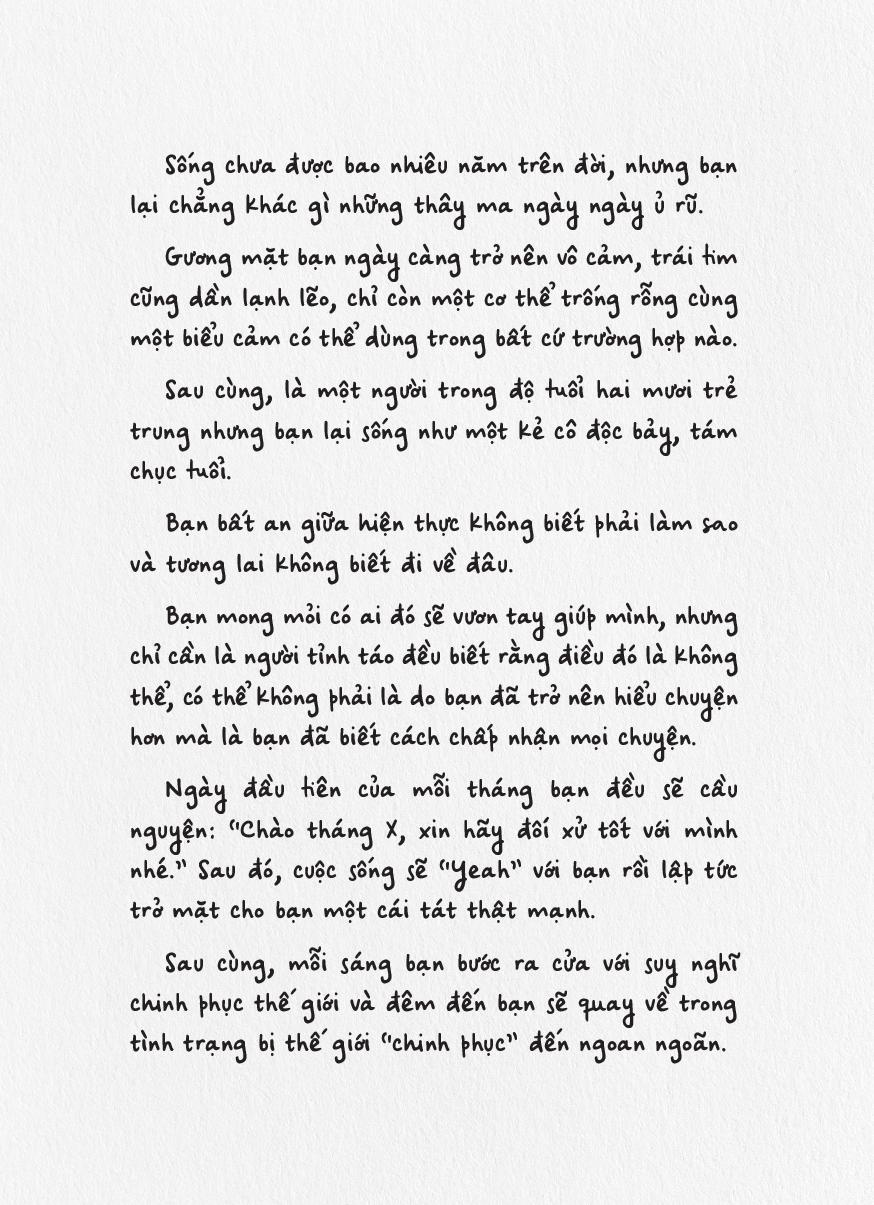 Sống chưa được bao nhiêu năm trên đời, nhưng bạn
lại chẳng khác gì những thây ma ngày ngày ủ rũ.
Gương mặt bạn ngày càng trở nên vô cảm, trái tim
cũng dần lạnh lẽo, chỉ còn một cơ thể trống rỗng cùng
một biểu cảm có thể dùng trong bất cứ trường hợp nào.
Sau cùng, là một người trong độ tuổi hai mươi trẻ
trung nhưng bạn lại sống như một kẻ cô độc bảy, tám
chục tuổi.
Bạn bất an giữa hiện thực không biết phải làm sao
và tương lai không biết đi về đâu.
Bạn mong mỏi có ai đó sẽ vươn tay giúp mình, nhưng
chỉ cần là người tỉnh táo đều biết rằng điều đó là không
thể, có thể không phải là do bạn đã trở nên hiểu chuyện
hơn mà là bạn đã biết cách chấp nhận mọi chuyện.
Ngày đầu tiên của mỗi tháng bạn đều sẽ cầu
nguyện: “Chào tháng X, xin hãy đối xử tốt với mình
nhé.” Sau đó, cuộc sống sẽ “Yeah” với bạn rồi lập tức
trở mặt cho bạn một cái tát thật mạnh.
Sau cùng, mỗi sáng bạn bước ra cửa với suy nghĩ
chinh phục thế giới và đêm đến bạn sẽ quay về trong
tình trạng bị thế giới “chinh phục” đến ngoan ngoãn.